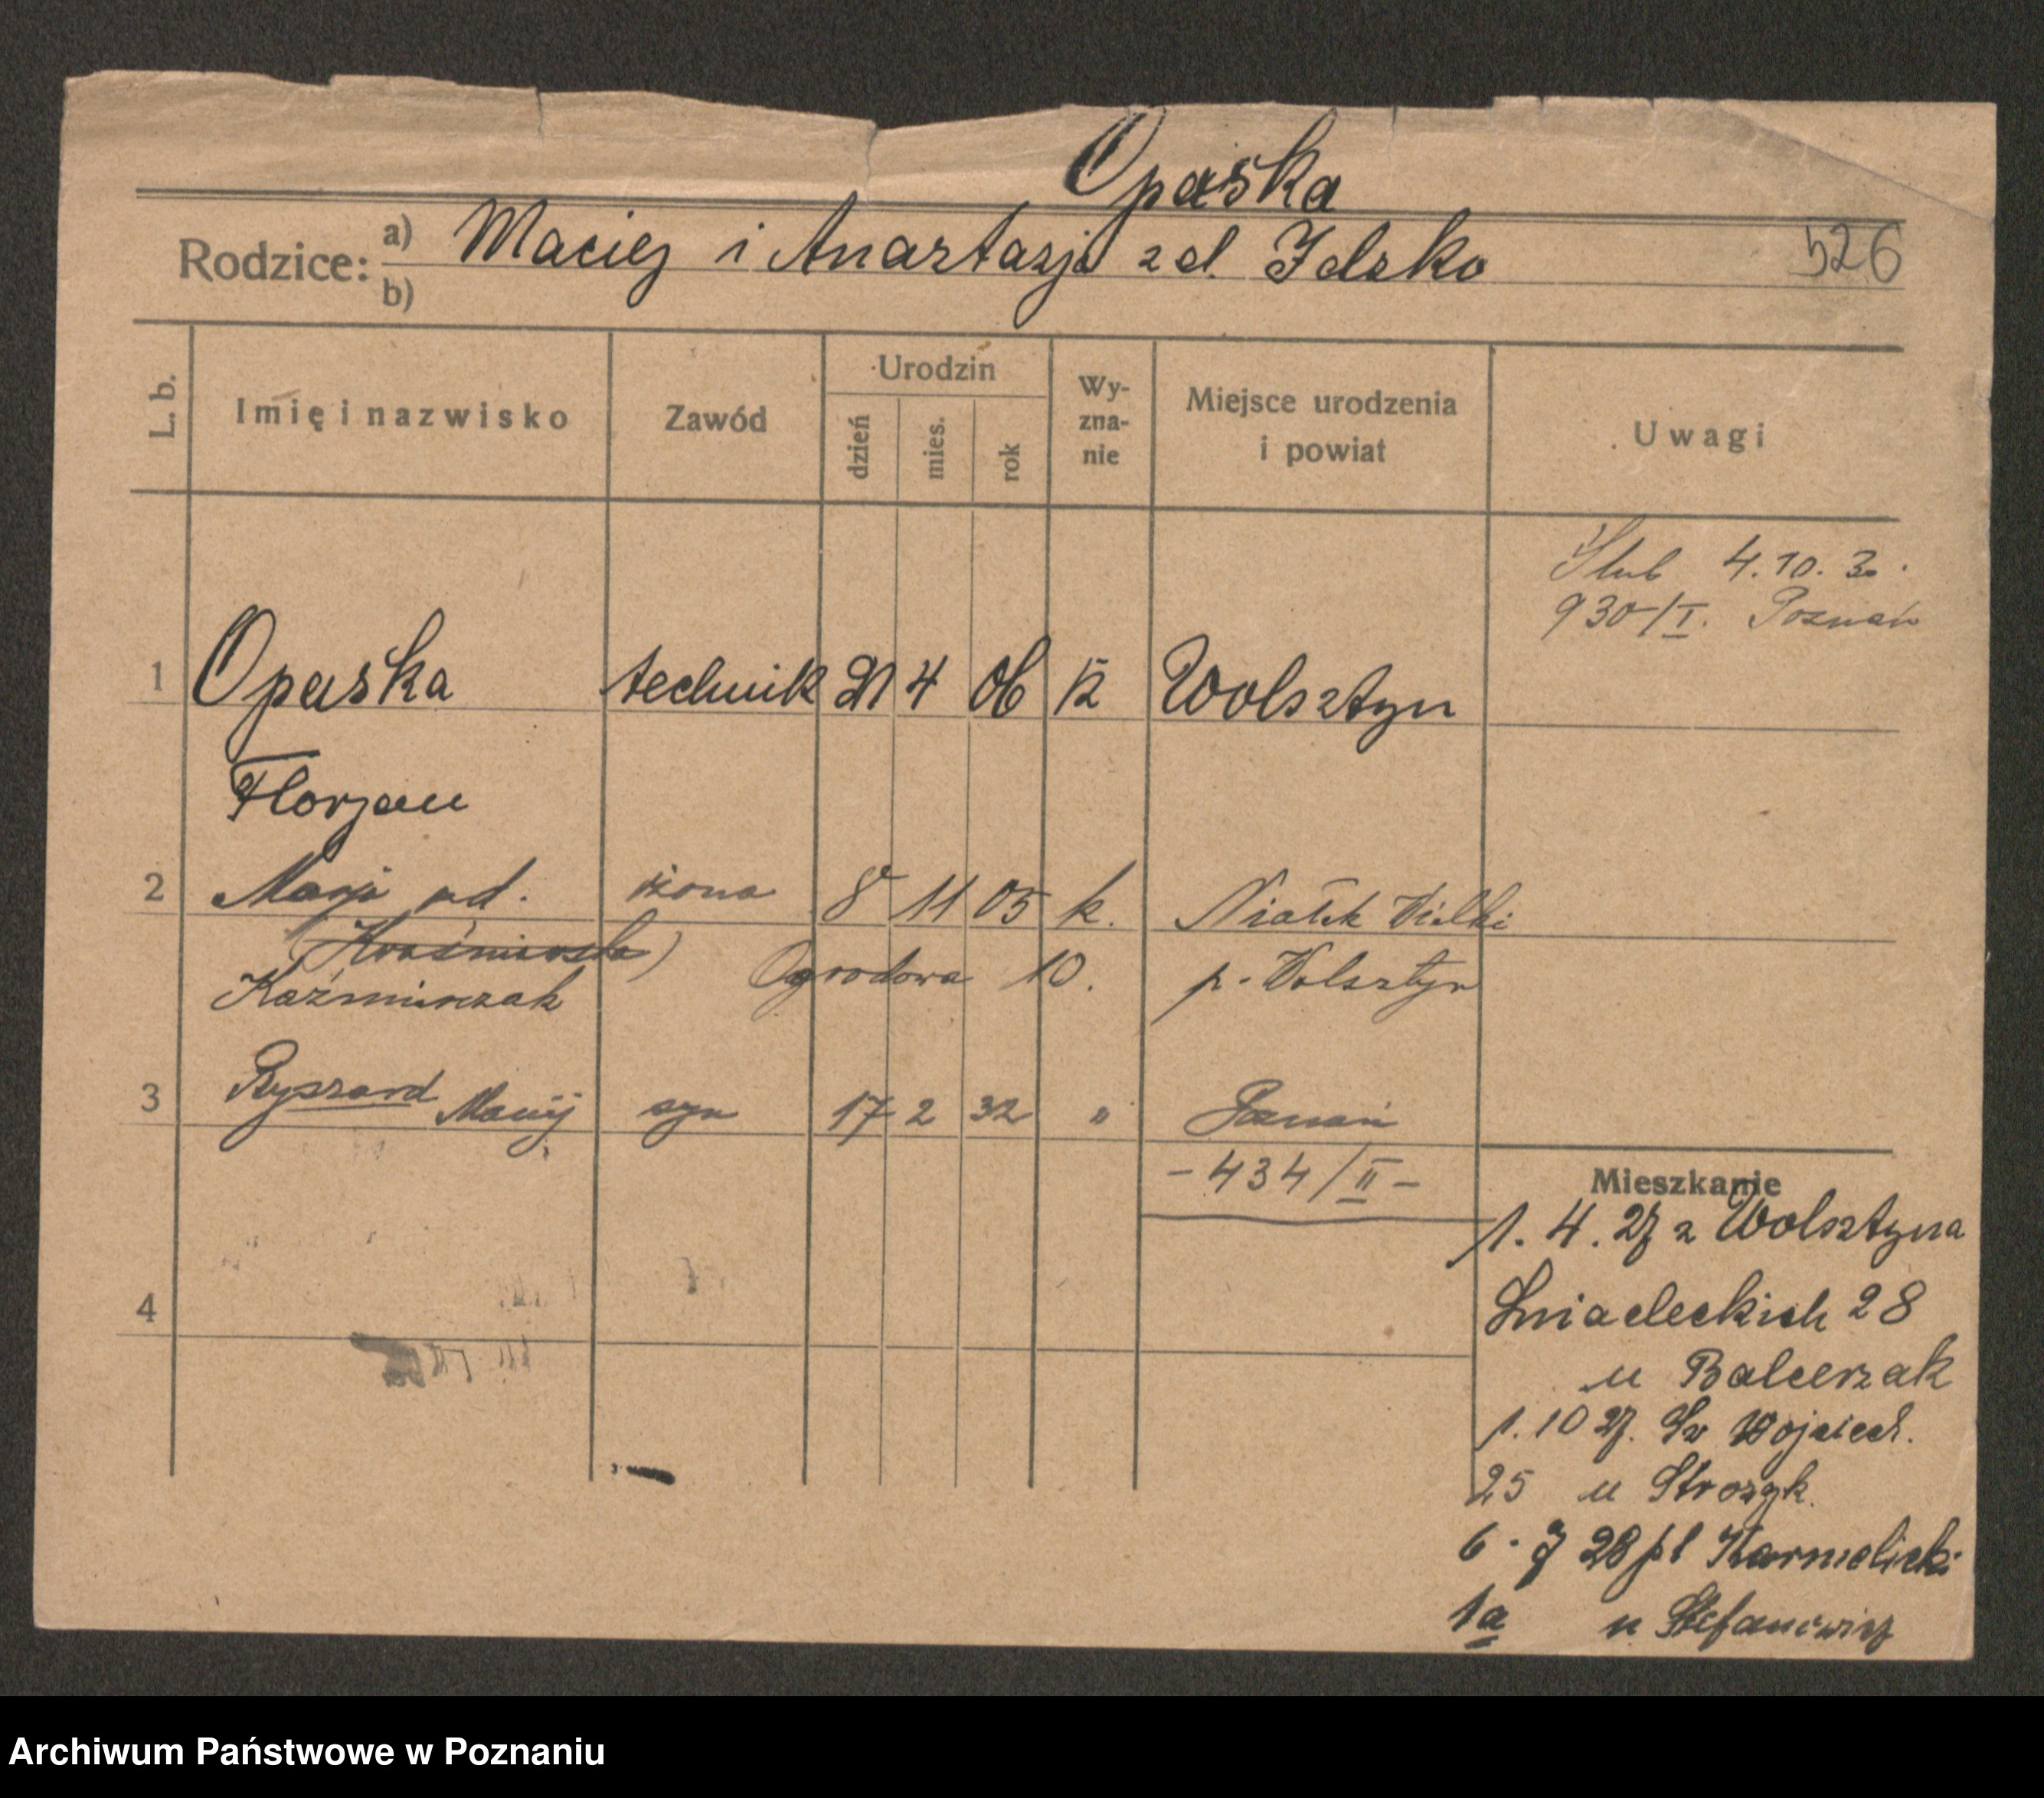 Opaska
Rodzice: a) Maciej i Anastazja z d. Idzko
b)
526
L. b.
Imię i nazwisko
Zawód
Urodzin
dzień
mies.
rok
Wy-
zna-
nie
Miejsce urodzenia
i powiat
Uwagi
Ślub 4.10.30.
930/I. Poznań
1 Opaska technik 21 4 06 K Wolsztyn
Florjan
2 Marja ud. żona 8 11 05 k. Niałek Wielki
Ogrodowa 10. p. Wolsztyn
Kaźmierczak
3 Ryszard Maciej syn 17 2 32 " Poznań
- 434/II -
4
Mieszkanie
1. 4. 27 z Wolsztyna
Śniadeckich 28
u Balcerzak
1. 10 27. Św Wojciech.
25 u Strozyk.
6. 7 28 pl Karmelicki
1a u Stefanowicz
Archiwum Państwowe w Poznaniu